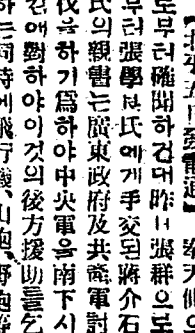 北平五日發電通】 奉側
로부터確聞하건대昨日張群으로
부터張學良氏에게手交된蔣介石
氏의親書는廣東政府及共產軍討
伐을하기爲하야中央軍을南下시
킴에對하야이것의後方援助를乞
하는同時에飛行機、山砲、野砲等